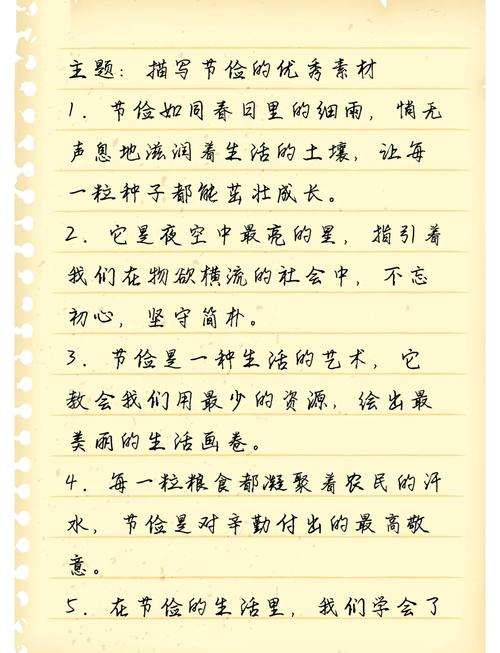 主题：描写节俭的优秀素材
1. 节俭如同春日里的细雨，悄无
声息地滋润着生活的土壤，让每
一粒种子都能茁壮成长。
2. 它是夜空中最亮的星，指引着
我们在物欲横流的社会中，不忘
初心，坚守简朴。
3. 节俭是一种生活的艺术，它
教会我们用最少的资源，绘出最
美丽的生活画卷。
4. 每一粒粮食都凝聚着农民的汗
水，节俭是对辛勤付出的最高敬
意。
5. 在节俭的生活里，我们学会了